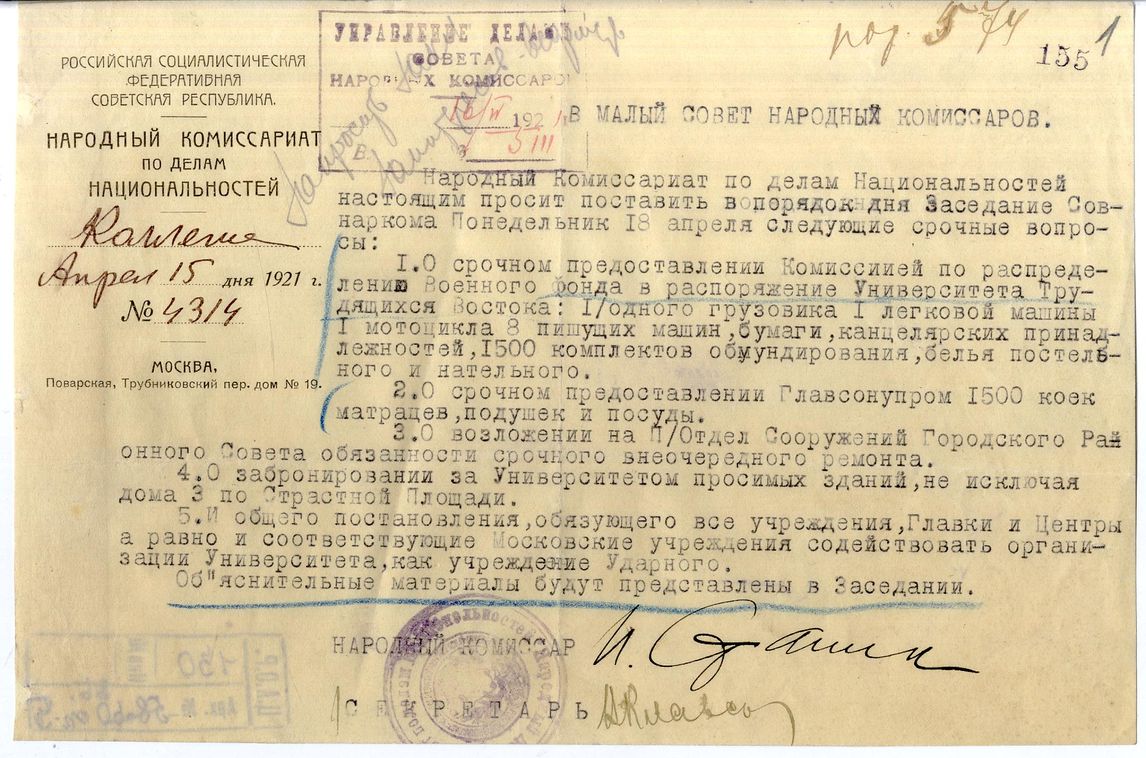 УПРАВЛЕНИЕ ДЕЛАМИ
СОВЕТА
НАРОДНЫХ КОМИССАРОВ
192
В
155
1
РОССИЙСКАЯ СОЦИАЛИСТИЧЕСКАЯ
ФЕДЕРАТИВНАЯ
СОВЕТСКАЯ РЕСПУБЛИКА.
НАРОДНЫЙ КОМИССАРИАТ
ПО ДЕЛАМ
НАЦИОНАЛЬНОСТЕЙ
Коллегия
Апрел 15 дня 1921 г.
№ 4314
МОСКВА,
Поварская, Трубниковский пер. дом № 19.
В МАЛЫЙ СОВЕТ НАРОДНЫХ КОМИССАРОВ.
Народный Комиссариат по делам Национальностей
настоящим просит поставить вопорядок дня Заседание Сов-
наркома Понедельник 18 апреля следующие срочные вопро-
сы:
1.О срочном предоставлении Комиссиией по распреде-
лению Военного фонда в распоряжение Университета Тру-
дящихся Востока: I/одного грузовика I легковой машины
I мотоцикла 8 пишущих машин,бумаги,канцелярских принад-
лежностей,1500 комплектов обмундирования,белья постель-
ного и нательного.
2.О срочном предоставлении Главсонупром 1500 коек
матрацев,подушек и посуды.
3.О возложении на П/Отдел Сооружений Городского Рай
онного Совета обязанности срочного внеочередного ремонта.
4.О забронировании за Университетом просимых зданий,не исключая
дома 3 по Страстной Площади.
5.И общего постановления,обязующего все учреждения,Главки и Центры
а равно и соответствующие Московские учреждения содействовать органи-
зации Университета,как учреждение Ударного.
Об"яснительные материалы будут представлены в Заседании.
НАРОДНЫЙ КОМИССАР И. Сталин
СЕКРЕТАРЬ